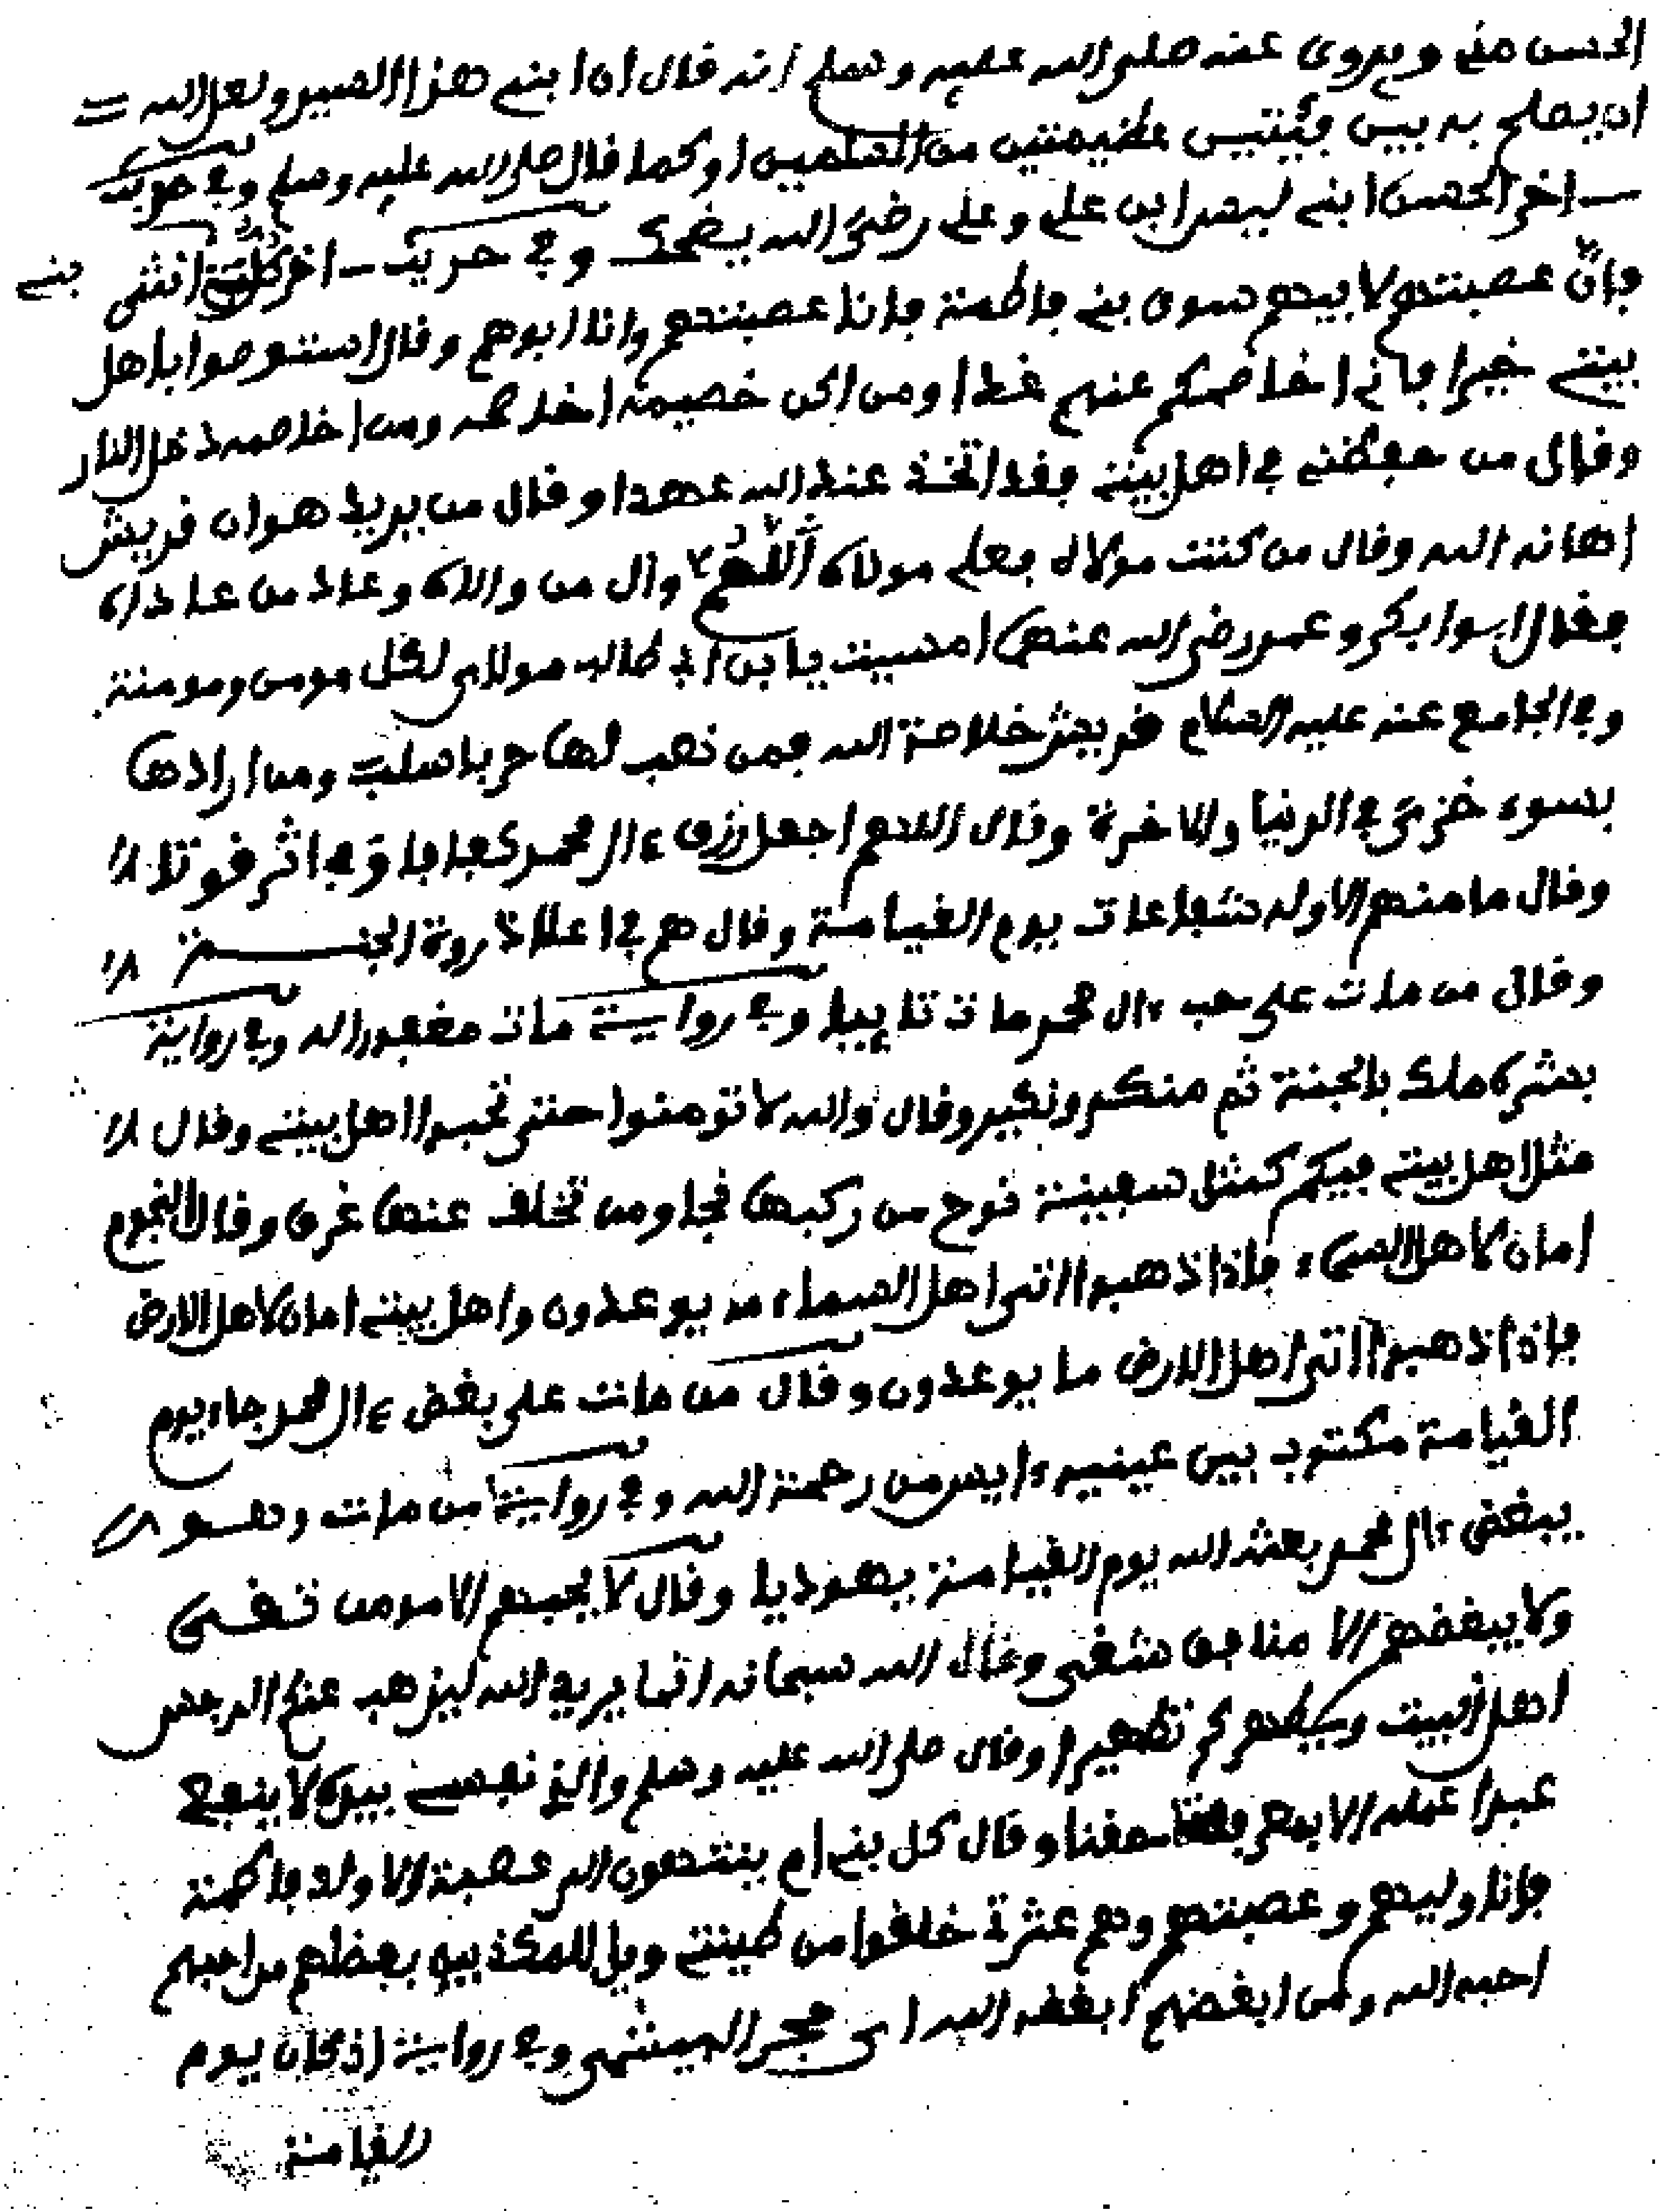 الحسن مني ويروى عنه صلى الله عليه وسلم انه قال ان ابني هذا السيد ولعل الله
ان يصلح به بين فئتين عظيمتين من المسلمين او كما قال صلى الله عليه وسلم وفي حديث
اخر الحسن ابني ليس ابن علي وعلي رضي الله يضحك وفي حديث اخر كل بني انثى
فان عصبتهم لابيهم سوى بني فاطمة فانا عصبتهم وانا ابوهم وقال استوصوا باهل
بيتي خيرا فاني اخاصمكم عنهم غدا ومن اكن خصيمه اخاصمه ومن اخاصمه دخل النار
وقال من حفظني في اهل بيتي فقد اتخذ عند الله عهدا وقال من يريد هوان قريش
اهانه الله وقال من كنت مولاه فعلي مولاه اللهم وال من والاه وعاد من عاداه
فقال ابوا بكر وعمر رضي الله عنهما امسيت يا بن ابي طالب مولاى لكل مومن ومومنة
وفي الجامع عنه عليه السلام قريش خلاصة الله فمن نصب لها حربا سلب ومن ارادها
بسوء خزي في الدنيا والاخرة وقال اللهم اجعل رزق ءال محمد كفافا وفي اثر قوتا
وقال ما منهم الا وله شفاعات يوم القيامة وقال هم في اعلا ذروة الجنة
وقال من مات على حب ءال محمد مات تايبا وفي رواية مات مغفورا له وفي رواية
بشره ملك بالجنة ثم منكر ونكير وقال والله لا تومنوا حتى تحبوا اهل بيتي وقال
مثل اهل بيتي فيكم كمثل سفينة نوح من ركبها نجا ومن تخلف عنها غرق وقال النجوم
امان لاهل السماء فاذا ذهبوا اتى اهل السماء ما يوعدون واهل بيتي امان لاهل الارض
فاذا ذهبوا اتى اهل الارض ما يوعدون وقال من مات على بغض ءال محمد جاء يوم
القيامة مكتوب بين عينيه ءايس من رحمة الله وفي رواية من مات وهو
يبغض ءال محمد بعثه الله يوم القيامة يهوديا وقال لا يحبهم الا مومن تقى
ولا يبغضهم الا منافق شقى وقال الله سبحانه انما يريد الله ليذهب عنكم الرجس
اهل البيت ويطهركم تطهيرا وقال صلى الله عليه وسلم والذي نفسي بيده لا ينفع
عبدا عمله الا بمعرفة حقنا وقال كل بني ام ينتمون الى عصبة الا ولد فاطمة
فانا وليهم وعصبتهم وهم عترتي خلقوا من طينتي ويل للمكذبين بفضلهم من احبهم
احبه الله ومن ابغضهم ابغضه الله وفي رواية اذ كان يوم
القيامة